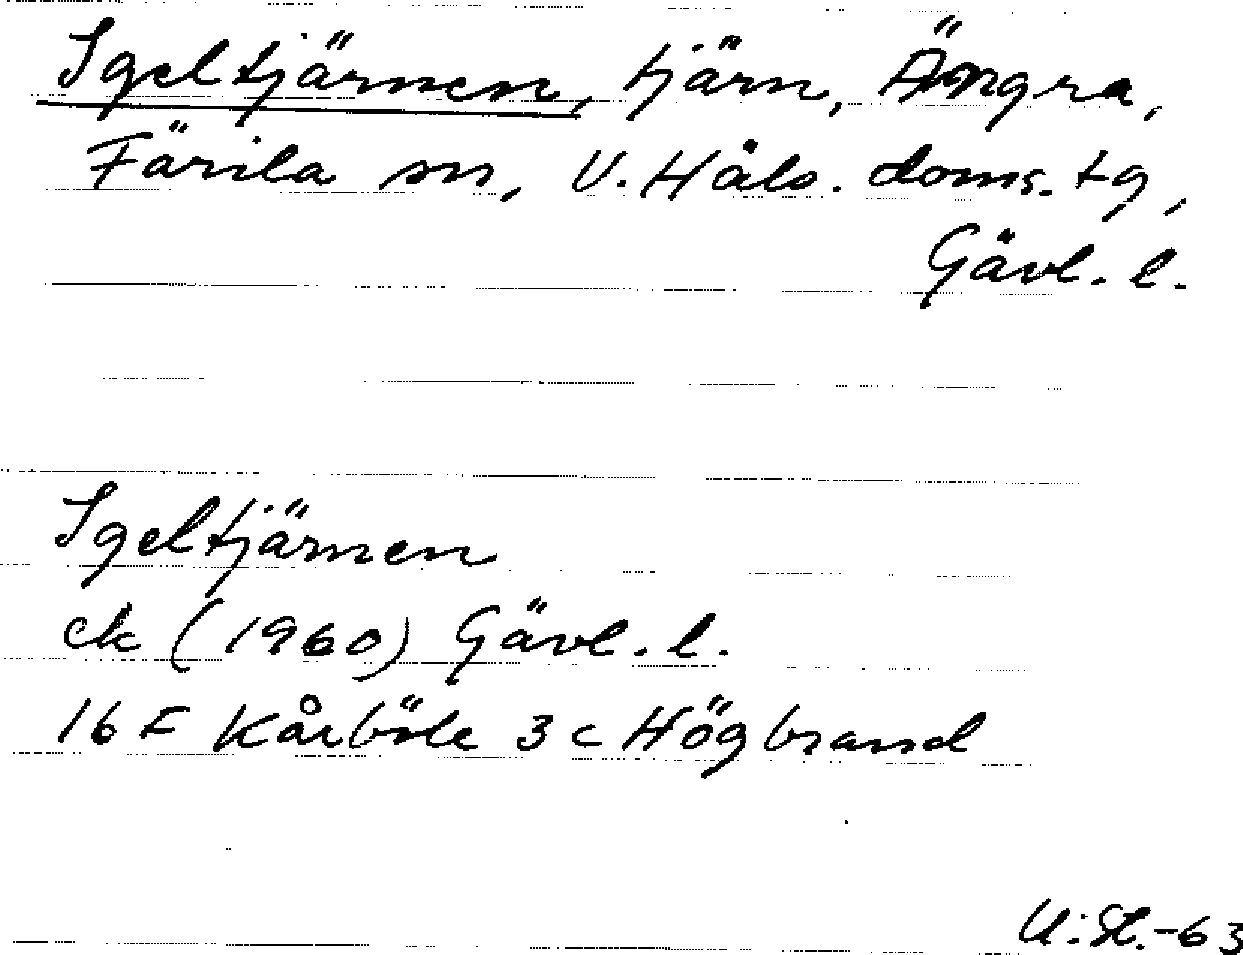 Igeltjärnen, tjärn, Ängra,
Färila sn, V. Häls. doms. tg,
Gävl. l.
Igeltjärnen
ek (1960) Gävl. l.
16 F Kårböle 3 c Högbrand
U. St. -63